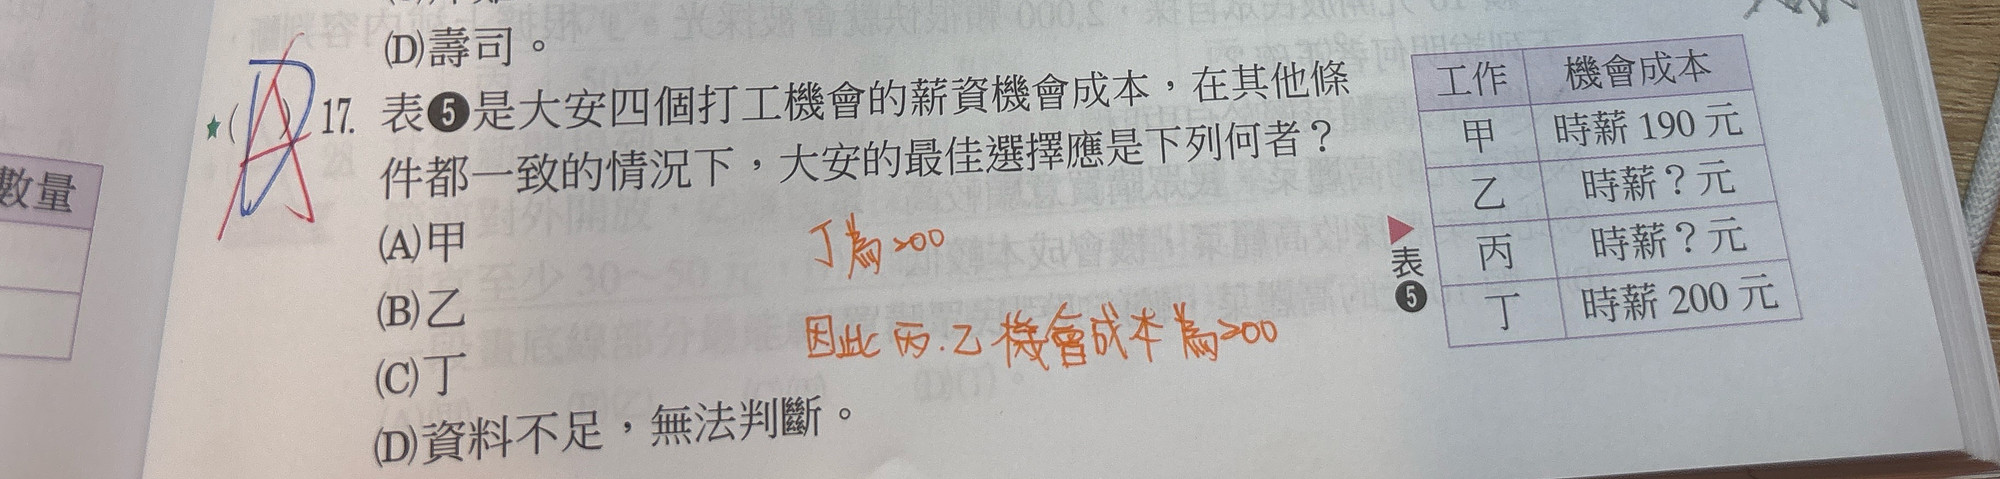 (D)壽司。
★( A ) 17. 表❺是大安四個打工機會的薪資機會成本，在其他條
件都一致的情況下，大安的最佳選擇應是下列何者？
(A)甲
(B)乙
(C)丁
(D)資料不足，無法判斷。
丁為200
因此丙.乙機會成本為200
工作 機會成本
甲 時薪 190 元
乙 時薪？元
丙 時薪？元
丁 時薪 200 元
▶表❺
數量